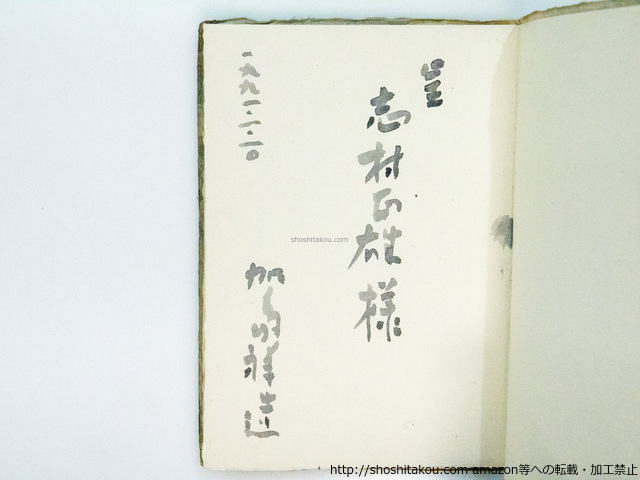 呈
志村正雄様
加島祥造
一九九一・一・二〇
shoshitakou.com
http://shoshitakou.com amazon等への転載・加工禁止